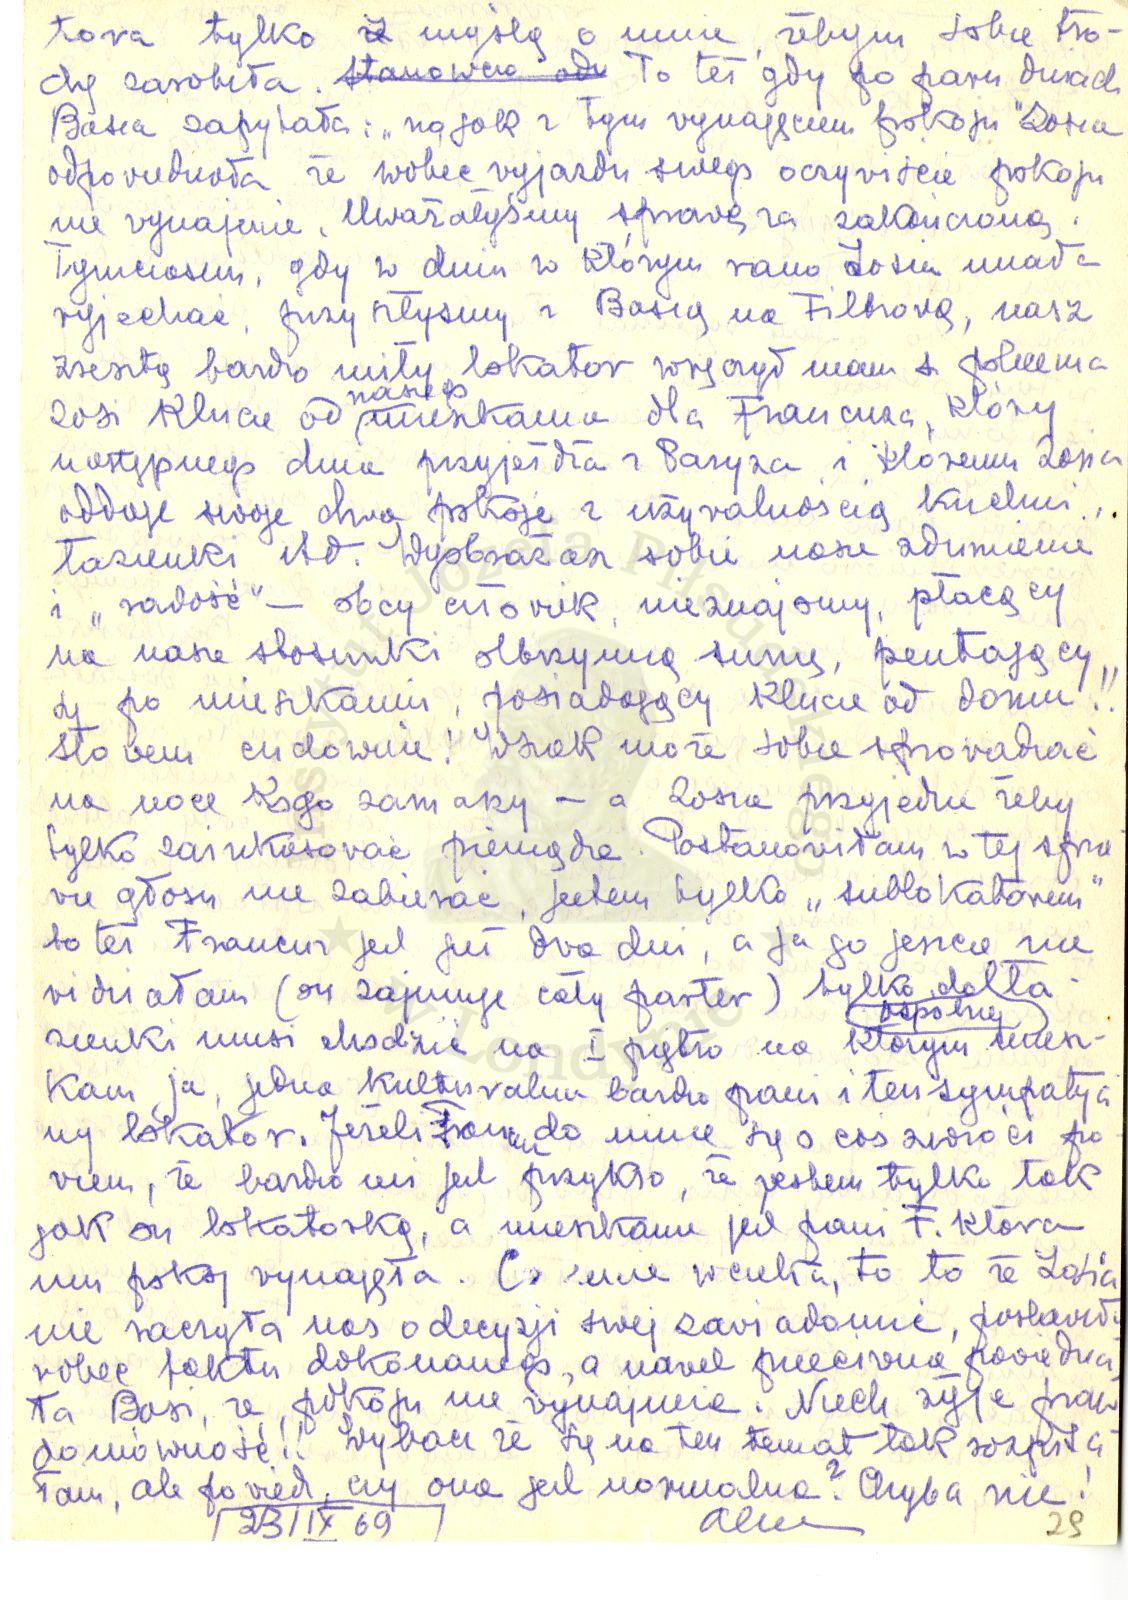 tova tylko z myślą o mnie, żebym sobie tro-
chę zarobiła. Stanowczo odm To też gdy po paru dniach
Basia zapytała: „no jak z tym vynajęciem pokoju" Zosia
odpoviedziała że wobec vyjazdu swego oczyviście pokoju
nie vynajmie. Uważałyśmy spravę za zakończoną.
Tymczasem, gdy w dniu w którym rano Zosia miała
vyjechać, przyszłyśmy z Basią na Filtrovą, nasz
zresztą bardzo miły lokator wręczył nam z polecenia
Zosi klucze od naszego mieszkania dla Francuza, który
następnego dnia przyjeżdża z Paryża i któremu Zosia
oddaje swoje dwa pokoje z używalnością kuchni,
łazienki itd. Wyobrażasz sobie nasze zdumienie
i „radość" — obcy człoviek, nieznajomy, płacący
na nasze stosunki olbrzymią sumę, pentający
się po mieszkaniu, posiadający klucze od domu!!
Słovem cudownie! Wszak może sobie sprovadzać
na noce kogo zamarzy — a Zosia przyjedzie żeby
tylko zainkasować pieniądze. Postanoviłam w tej spra
vie głosu nie zabierać, jestem tylko „sublokatorem"
to też Francuz jest już dva dni, a ja go jeszcze nie
vidziałam (on zajmuje cały parter) tylko do ła-
zienki vspólnej musi chodzić na I piętro na którym miesz-
kam ja, jedna kulturalna bardzo pani i ten sympatycz
ny lokator. Jeżeli Franc. do mnie się o coś zwróci po-
viem, że bardzo mi jest przykro, że jestem tylko tak
jak on lokatorką, a mieszkanie jest pani F. która
mu pokój vynajęła. Co mnie wciekła, to to że Zosia
nie raczyła nas o decyzji swej zaviadomić, postaviła
vobec faktu dokonanego, a navet przecivnie poviedzia
ła Basi, że pokoju nie vynajmie. Niech żyje praw
domówność!! Wybacz że się na ten temat tak rozpisa
łam, ale povied, czy ona jest normalna? Chyba nie!
23/IX 69
29